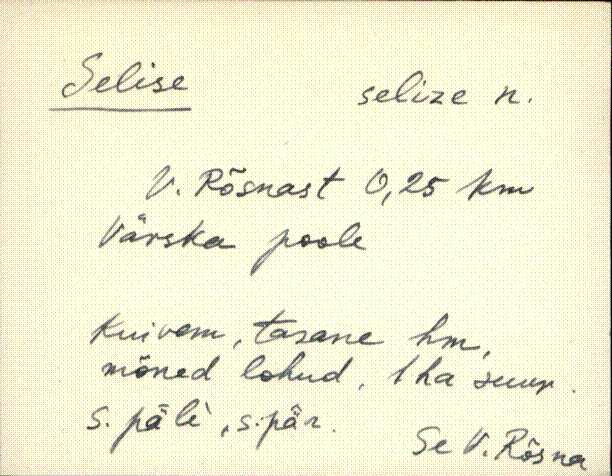 Selise
selize n.
V. Rõsnast 0,25 km
Värska poole
Kuivem, tasane hm,
mõned lohud, 1 ha suur.
s. päle, s. pär.
Se V. Rõsna